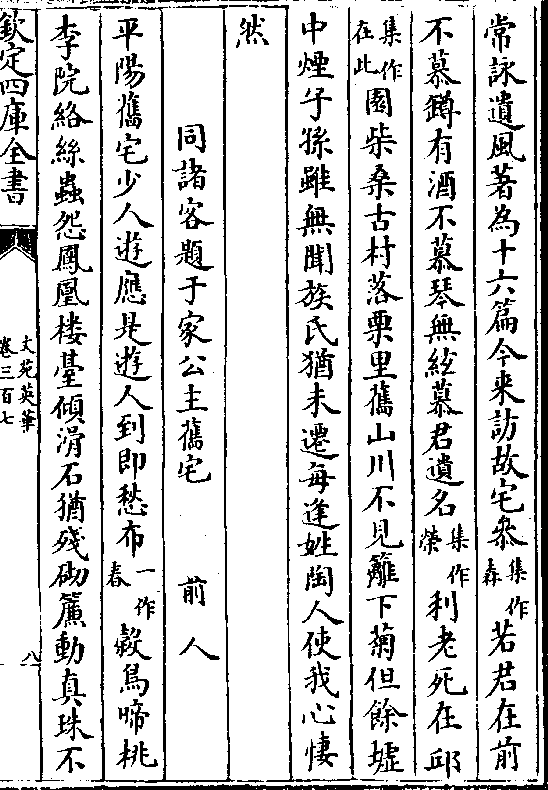 常詠遺風著為十六篇今来訪故宅叅集作森若君在前
不慕罇有酒不慕琴無絃慕君遺名集作榮利老死在邱
集作在此園柴桑古村落栗里舊山川不見籬下菊但餘墟
中煙子孫雖無聞族氏猶未遷每逢姓陶人使我心悽
然
同諸客題于家公主舊宅　前人
平陽舊宅少人遊應是遊人到即愁布一作春穀鳥啼桃
李院絡絲蟲怨鳳凰楼臺傾滑石猶殘砌簾動真珠不
欽定四庫全書
文苑英華
卷三百七
八